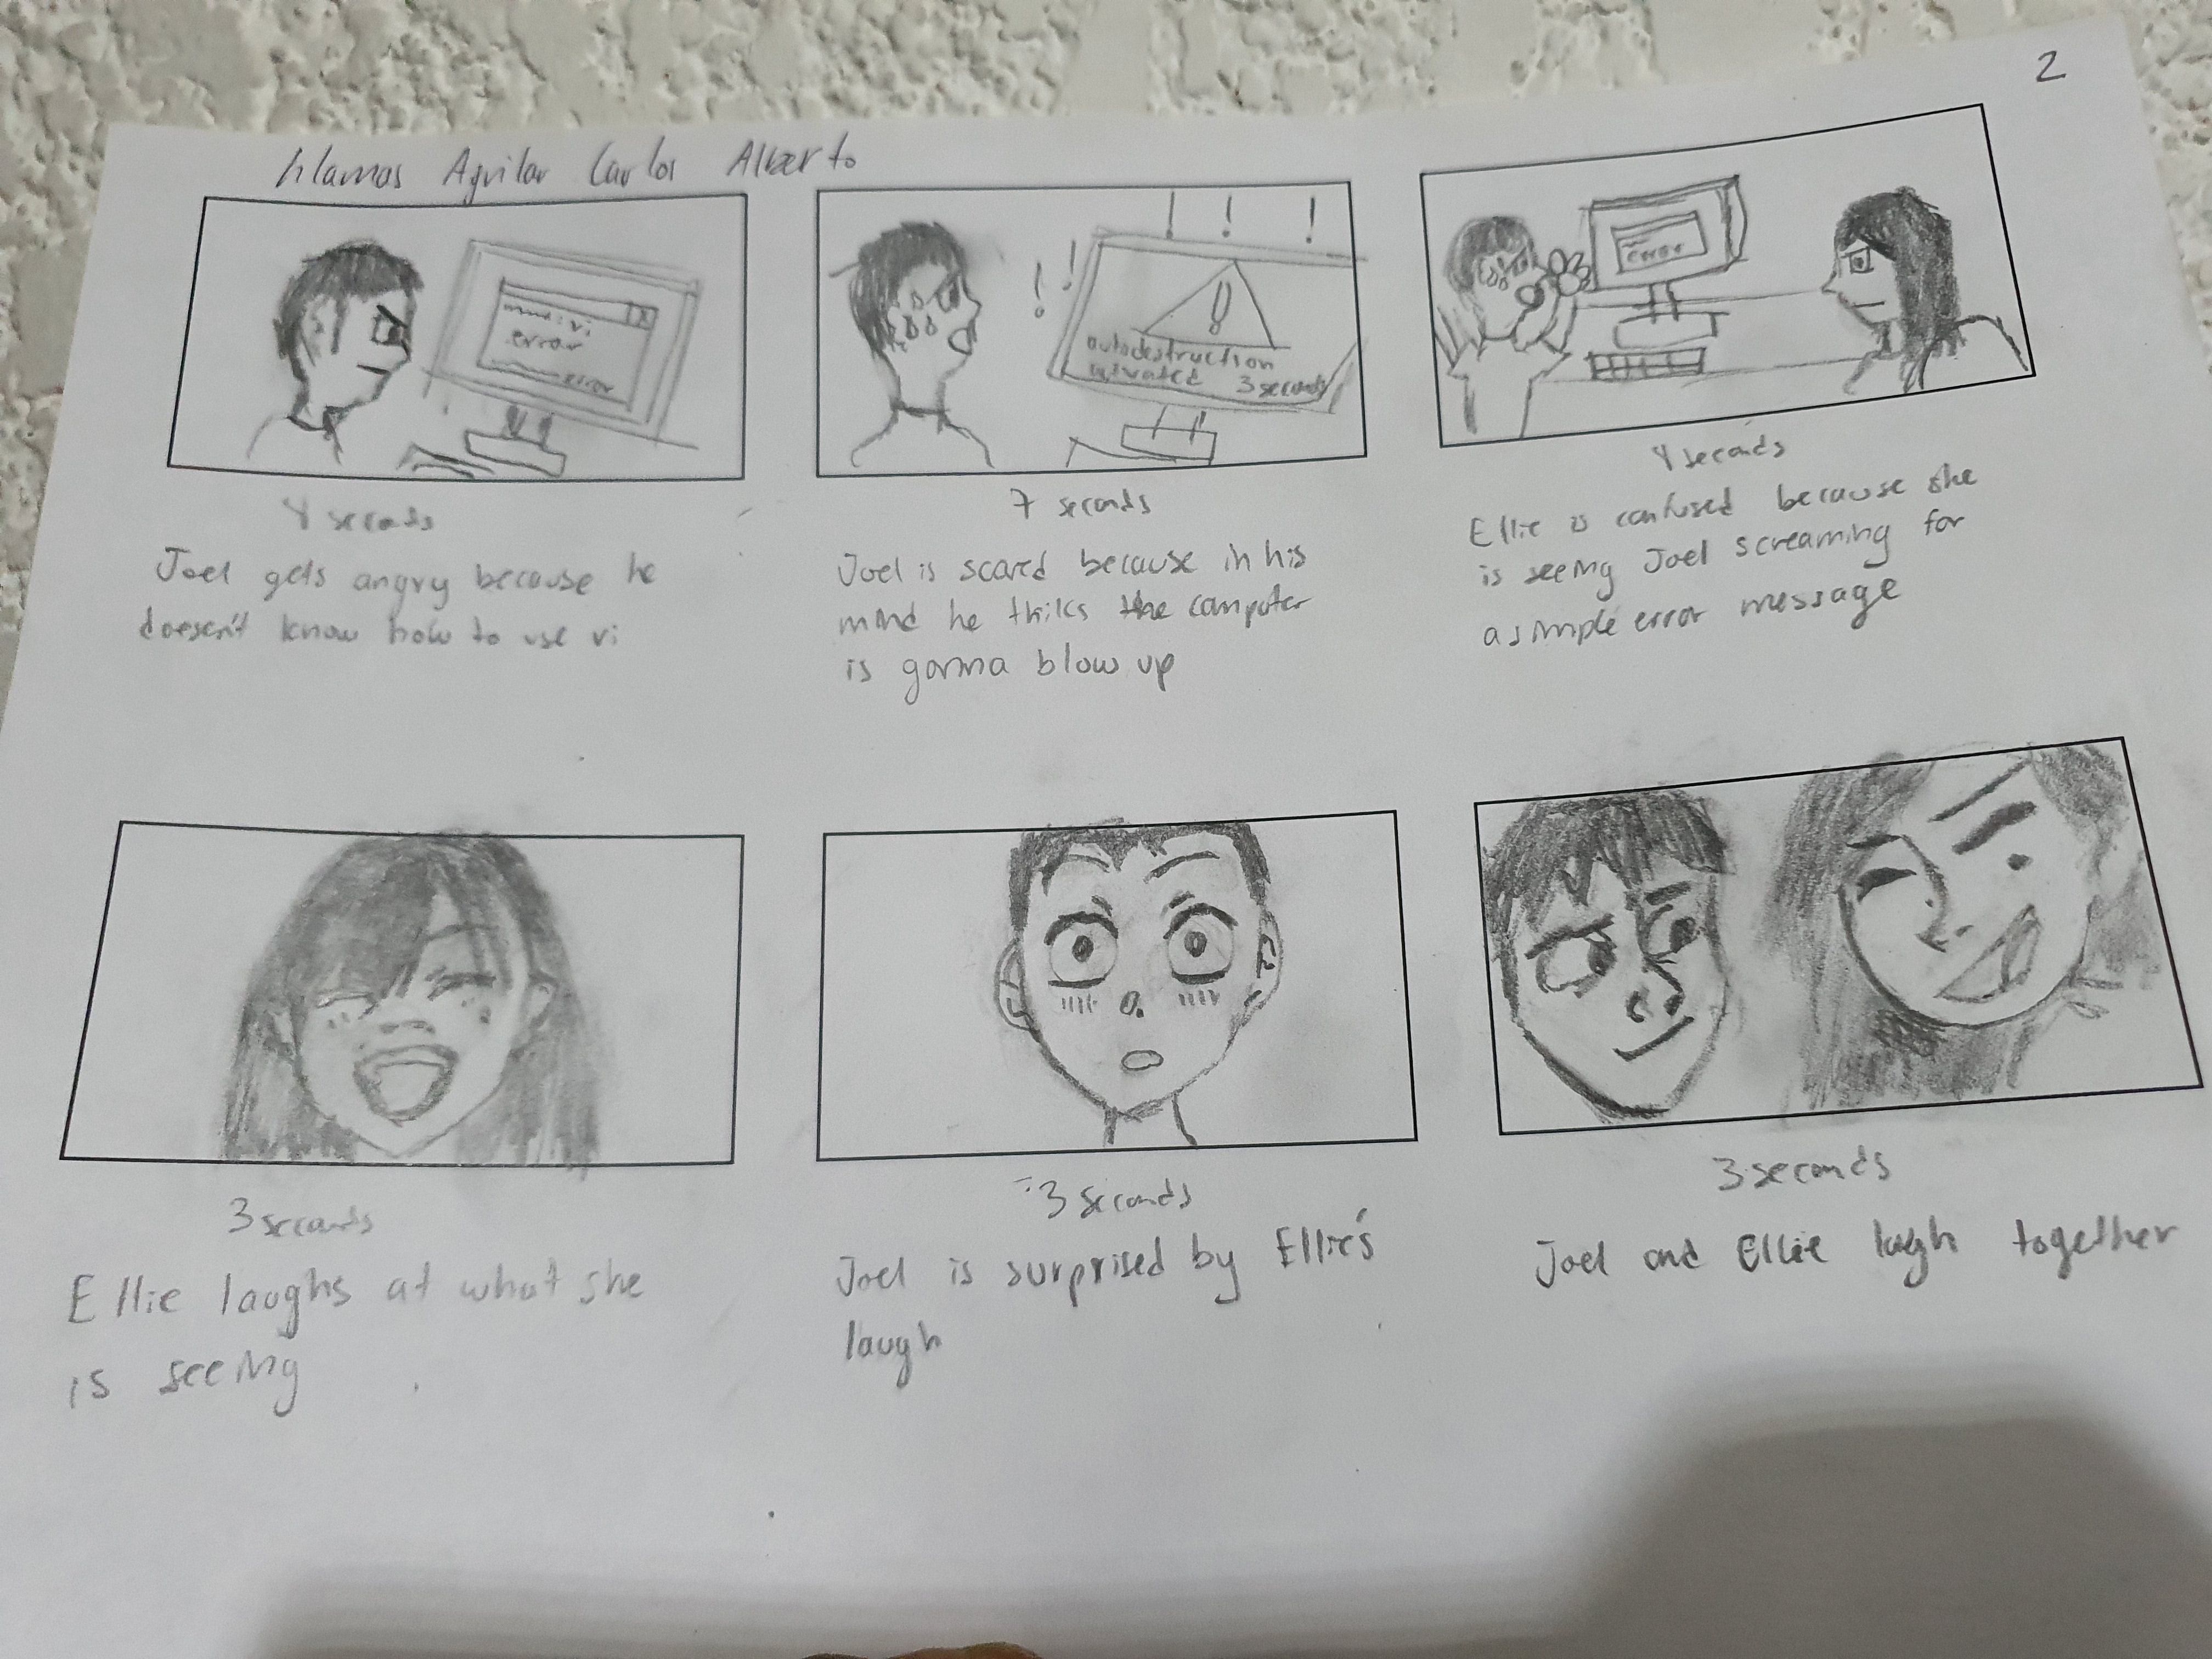 2
Alamos Aguilar Carlos Alberto
error
error
4 seconds
Joel gets angry because he
doesn't know how to use vi
! ! !
! !
!
autodestruction
activated 3 seconds
7 seconds
Joel is scared because in his
mind he thiks the computer
is gonna blow up
error
4 seconds
Ellie is confused because she
is seeing Joel screaming for
a simple error message
3 seconds
Ellie laughs at what she
is seeing
3 seconds
Joel is surprised by Ellie's
laugh
3 seconds
Joel and Ellie laugh together